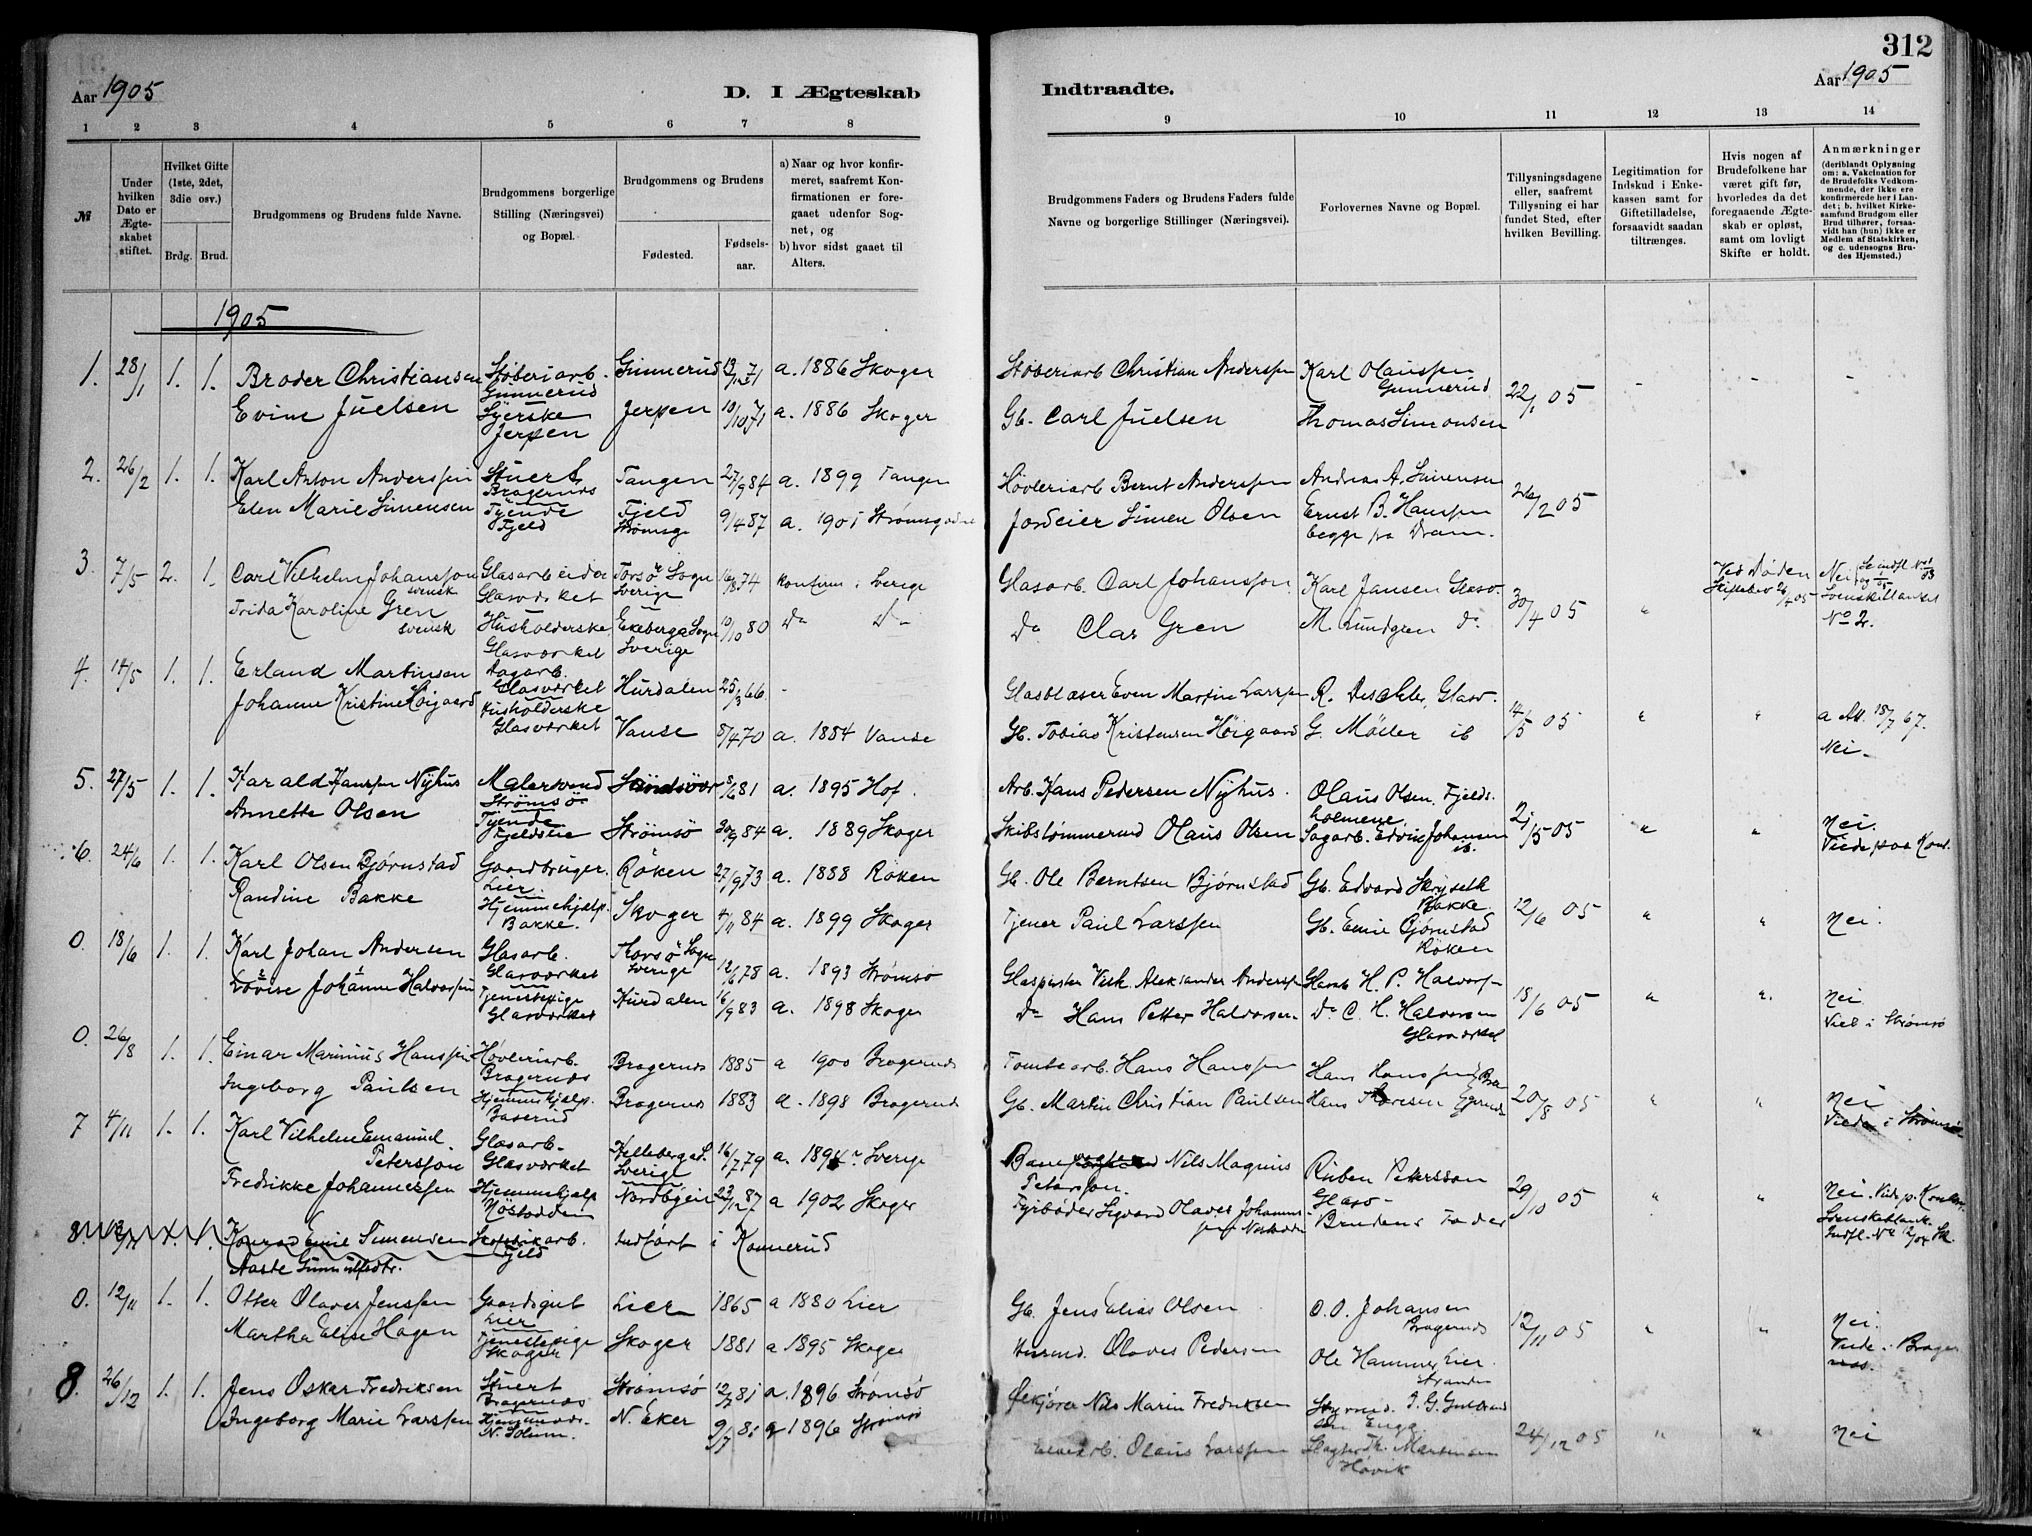 312
Aar 1905
D. I Ægteskab
Indtraadte.
Aar 1905
1 2 3 4 5 6 7 8 9 10 11 12 13 14
№
Under hvilken Dato er Ægteskabet stiftet.
Hvilket Gifte (1ste, 2det, 3die osv.)
Brdg. Brud.
Brudgommens og Brudens fulde Navne.
Brudgommens borgerlige Stilling (Næringsvei) og Bopæl.
Brudgommens og Brudens
Fødested.
Fødselsaar.
a) Naar og hvor konfirmeret, saafremt Konfirmationen er foregaaet udenfor Sognet, og
b) hvor sidst gaaet til Alters.
Brudgommens Faders og Brudens Faders fulde Navne og borgerlige Stillinger (Næringsvei).
Forlovernes Navne og Bopæl.
Tillysningsdagene eller, saafremt Tillysning ei har fundet Sted, efter hvilken Bevilling.
Legitimation for Indskud i Enkekassen samt for Giftetilladelse, forsaavidt saadan tiltrænges.
Hvis nogen af Brudefolkene har været gift før, hvorledes da det foregaaende Ægteskab er opløst, samt om lovligt Skifte er holdt.
Anmærkninger
(deriblandt Oplysning om: a. Vakcination for de Brudefolks Vedkommende, der ikke ere konfirmerede her i Landet; b. hvilket Kirkesamfund Brudgom eller Brud tilhører, forsaavidt han (hun) ikke er Medlem af Statskirken, og c. udensogns Brudes Hjemsted.)
1905
1. 28/1 1. 1. Broder Christiansen Støberiarb. Gunnerud Gunnerud 13/12 71 a. 1886 Skoger Støberiarb Christian Anderssen Karl Olaussen Gunnerud 22/1 05 - - -
Evine Juelsen Syerske Jerpen Jerpen 10/10 71 a. 1886 Skoger Gb. Carl Juelsen Thomas Simonsen
2. 26/2 1. 1. Karl Anton Anderssen Stuert Bragernes Tangen 27/9 84 a. 1899 Tangen Høvleriarb Bernt Anderssen Andreas A. Simensen 26/2 05
Elen Marie Simensen Tjende Fjeld Fjeld Strømsg 9/4 87 a. 1901 Jordeier Simen Olsen Ernst B. Hanssen begge fra Dram.
3. 7/5 2. 1. Carl Vilhelm Johansson svensk Glasarbeider Glasverket Torsö Sogn Sverige 16/8 74 konfirm i Sverige Glasarb. Carl Johansson Karl Jansen Glasv. 30/4 05 " Ved Døden Nei
Frida Karoline Gren svensk Husholderske Glasværket Ekeberga Sogn Sverige 10/10 80 Do Do Do Clas Gren M. Lundgren Do No 2.
4. 14/5 1. 1. Erland Martinsen Sagarb. Glasværket Hurdalen 25/3 66. - Glasblæser Even Martin Larssen R. Deschler Glasv. 14/5 05 " " a Att. 18/7 67.
Johanne Kristine Høigaard Husholderske Glasværket Vanse 8/4 70 a. 1884 Vanse Gb. Tobias Kristensen Høigaard G. Møller ib Nei
5. 27/5 1. 1. Harald Hanssen Nyhus Malersvend Strømsø 8/6 81 a. 1895 Hof. Arb. Hans Pedersen Nyhus. Olaus Olsen, Fjeldsholmene. 21/5 05 " " Nei.
Annette Olsen Tjende Strømsö 30/9 84 a. 1889 Skoger Skibstømmermd Olaus Olsen Sagarb. Edvin Johansen ib. Viede paa Kont.
6. 24/6 1. 1. Karl Olsen Bjørnstad Gaardbruger. Lier. Röken 27/9 73 a. 1888 Röken Gb. Ole Berntsen Bjørnstad Gb. Edvard Skryseth Bakke. 12/6 05 " " Nei.
Randine Bakke Hjemmehjælp. Bakke. Skoger 4/11 84 a. 1899 Skoger Tjener Paul Larssen Gb. Emil Bjørnstad Röken
0. 18/6 1. 1. Karl Johan Andersen Glasarb. Glasværket Torsö Sogn Sverige 12/6 78 a. 1893 Strømsø Vilh. Aleksander Anderssen Glasarb H. P. Halvorsen 18/6 05 " " Nei
Lovise Johanne Halvorsen Tjenestepige Glasværket Hurdalen 16/9 83 a. 1898 Skoger Do Hans Petter Halvorsen Do C. H. Halvorsen Glasværket Viet i Strømsö
0. 26/8 1. 1. Einar Marinius Hanssen Høvleriarb. Bragernes Bragernes 1885 a 1900 Bragernes Tomtearb. Hans Hanssen Hans Hanssen 20/8 05 " " Nei
Ingeborg Paulsen Hjemmehjælp. Baserud Bragernes 1883 a. 1898 Bragernes Gb. Martin Christian Paulsen Hans Viede i Strømsø
7 4/11 1. 1. Karl Vilhelm Emanuel Petersson Glasarb. Glasværket Hellebergad. Sverige 16/7 79 a. 1894 Sverige Nils Magnus Petersson. Ruben Petersson Glasv. 29/10 05 " " Nei. Vide p. Kontor.
Fredrikke Johannessen Hjemmehjælp Møstadden Nordbyeie 23/12 87 a 1902 Skoger Fyrbøder Sigvard Olaves Johannessen Brudens Fader
8. 1. 1. Konrad Emil Simensen Fjeld Indført i Konnerud
Aaste Gunnulfsdtr.
0. 12/11 1. 1. Otter Olaver Jenssen Gaardsgut Lier Lier 1865 a 1880 Lier Gb. Jens Elias Olsen O. O. Johansen Bragernes 12/11 05 " " Nei.
Martha Elise Hagen Tjenestepige Skoger Skoger 1881 a 1895 Skoger Husmd. Olaves Pedersen Ole Hammer Lier. Viede i Bragernæs.
8. 26/12 1. 1. Jens Oskar Fredriksen Stuert Bragernes Strømsø 12/7 81 a. 1896 Strømsø Nils Marin Fredriksen 24/12 05 " " Nei
Ingeborg Marie Larssen N. Eker 9/7 81 a 1896 Strømsö Olaus Larssen Martinsen Høvik